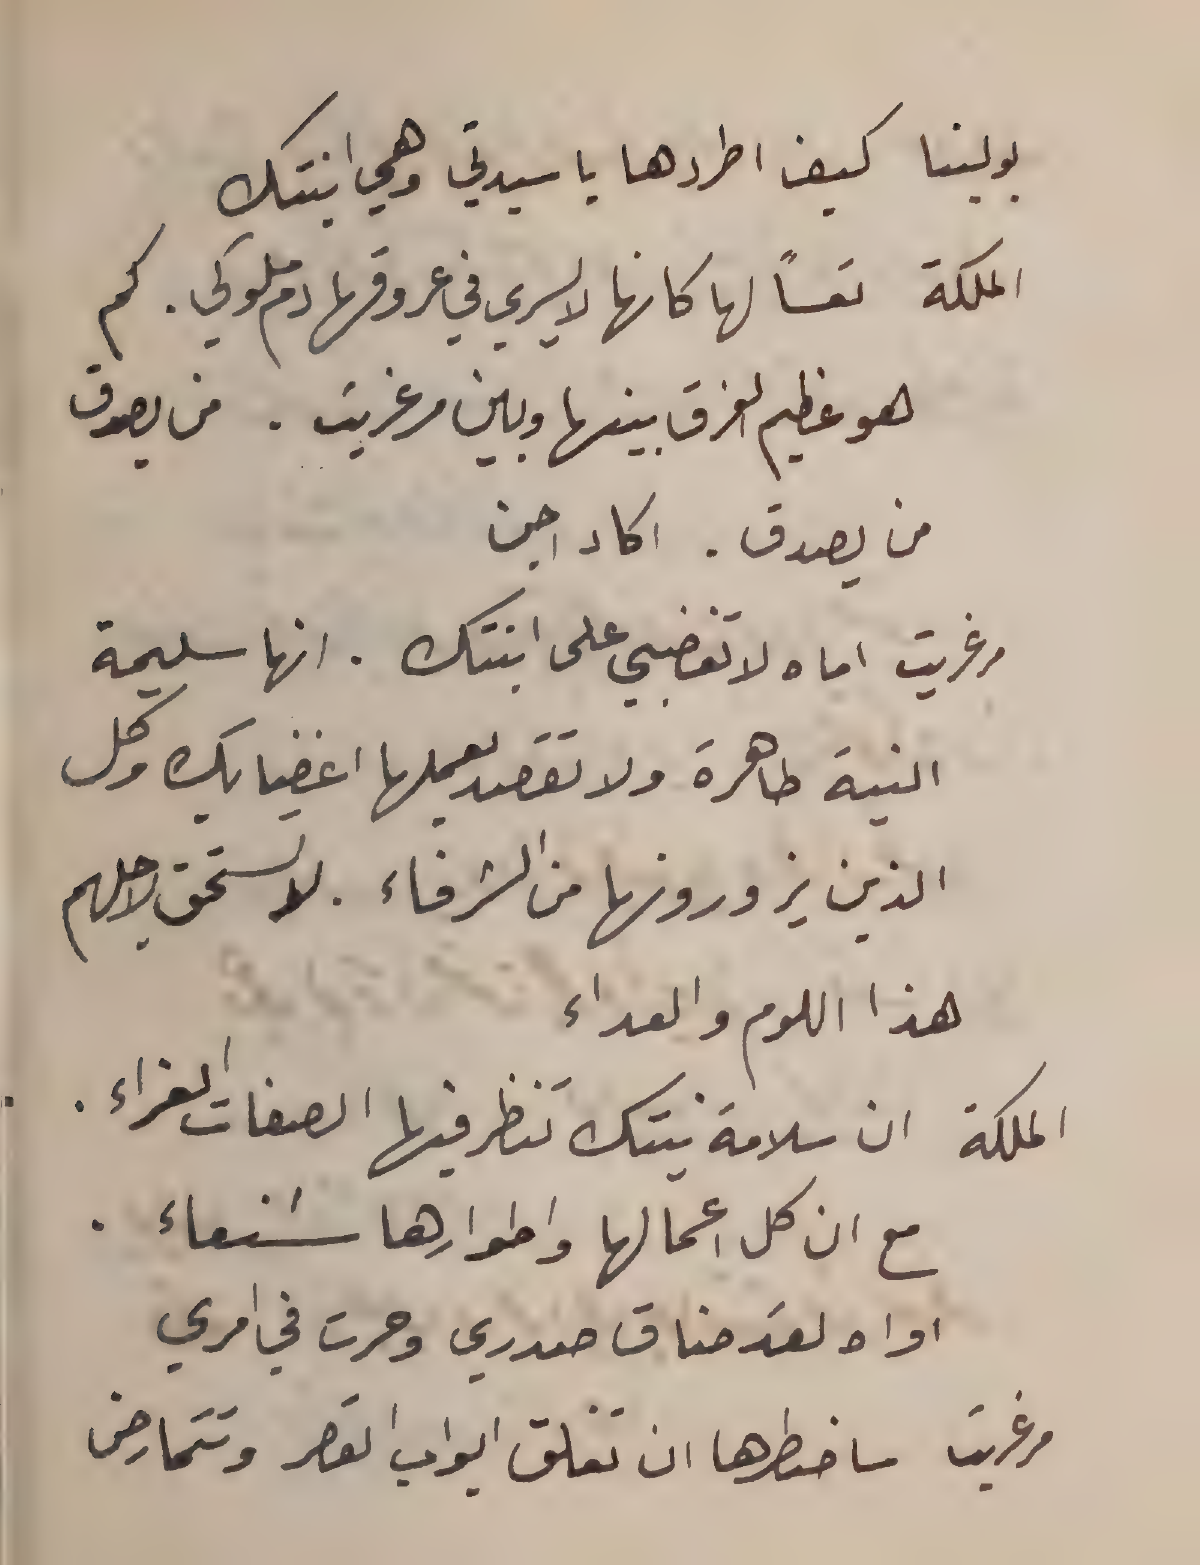 بولينا كيف اطردها يا سيدتي وهي ابنتك
الملكة تعسًا لها كانها لا يسري في عروقها دم ملوكي . كم
هو عظيم الفرق بينها وبين مرغريت . من يصدق
من يصدق . اكاد اجن
مرغريت اماه لا تغضبي على ابنتك . انها سليمة
النية طاهرة ولا تقصد بعملها اغضابك وكل
الذين يزورونها من الشرفاء . لا تستحق لاجلهم
هذا اللوم والعداء
الملكة ان سلامة نيتك تنظر فيها الصفات الغراء .
مع ان كل اعمالها واطوارها شنعاء .
اواه لقد ضاق صدري وحرت في امري
مرغريت ساضطرها ان تغلق ابواب القصر وتتمارض